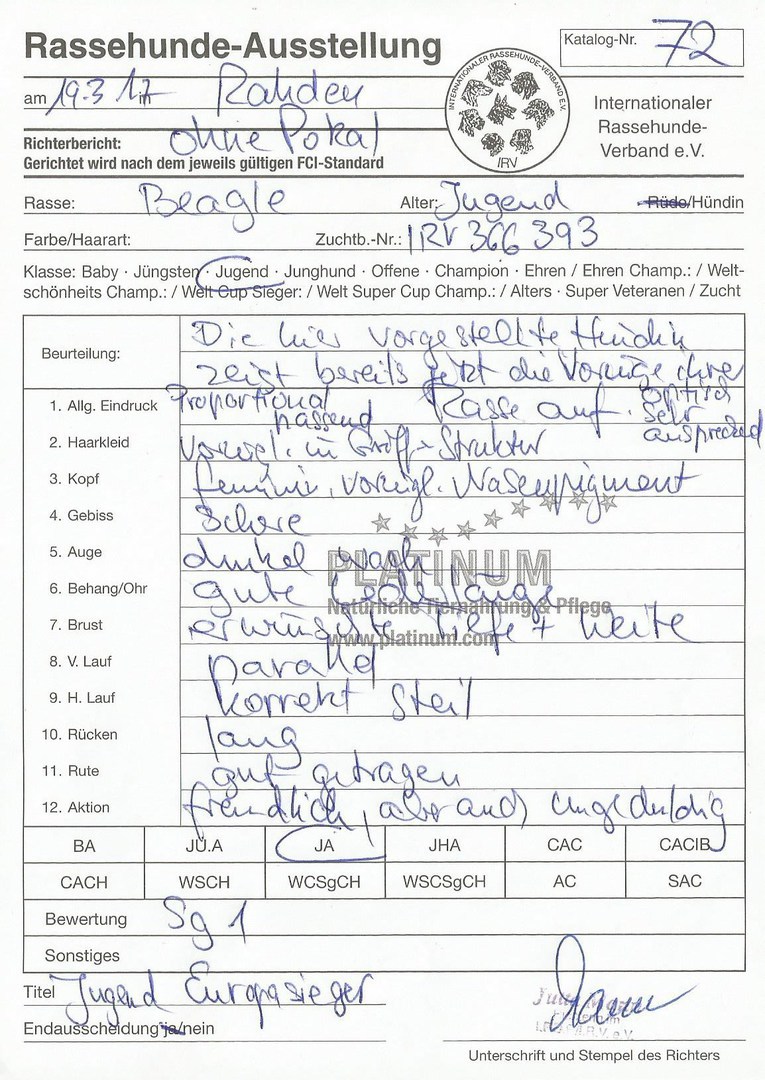 Rassehunde-Ausstellung
Katalog-Nr. 72
am 19.3.17 in Rahden
INTERNATIONALER RASSEHUNDE-VERBAND E.V.
IRV
Internationaler
Rassehunde-
Verband e.V.
ohne Pokal
Richterbericht:
Gerichtet wird nach dem jeweils gültigen FCI-Standard
Rasse: Beagle Alter: Jugend Rüde/Hündin
Farbe/Haarart: Zuchtb.-Nr.: IRV 366 393
Klasse: Baby · Jüngsten · Jugend · Junghund · Offene · Champion · Ehren / Ehren Champ.: / Welt-
schönheits Champ.: / Welt Cup Sieger: / Welt Super Cup Champ.: / Alters · Super Veteranen / Zucht
Beurteilung: Die hier vorgestellte Hündin
zeigt bereits jetzt die Vorzüge ihrer
Rasse auf. optisch
sehr
ansprechend
1. Allg. Eindruck Proportional
passend
2. Haarkleid vorzügl. in Griff + Struktur
3. Kopf feminin, vorzügl. Nasenpigment
4. Gebiss Schere
5. Auge dunkel wach
PLATINUM
6. Behang/Ohr gute Länge
Natürliche Tiernahrung & Pflege
7. Brust erwünschte Tiefe + Weite
www.platinum.com
8. V. Lauf parallel
9. H. Lauf korrekt steil
10. Rücken lang
11. Rute gut getragen
12. Aktion freundlich, aber auch ungeduldig
BA JÜ.A JA JHA CAC CACIB
CACH WSCH WCSgCH WSCSgCH AC SAC
Bewertung Sg 1
Sonstiges
Titel Jugend Europasieger
Endausscheidung ja/nein
Unterschrift und Stempel des Richters